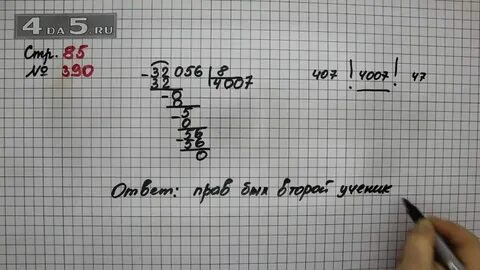 4DA5.RU
Стр. 85
№ 390
-32056 | 8
32 | 4007
-0
0
-5
0
-56
56
0
407 ! 4007 ! 47
Ответ: прав был второй ученик